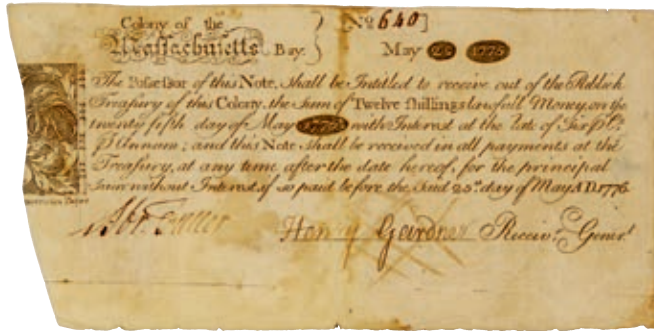 Colony of the No 640]
Massachusetts Bay. } May 25 1775
The Possessor of this Note, shall be Intitled to receive out of the Publick
Treasury of this Colony, the Sum of Twelve Shillings lawfull Money, on the
twenty fifth day of May 1776 with Interest at the Rate of Six ₱ Ct.
₱ Annum; and this Note shall be received in all payments at the
Treasury, at any time after the date hereof, for the principal
Sum without Interest, if so paid before the said 25th. day of May A D. 1776
Henry Gardner Receivr. Generl